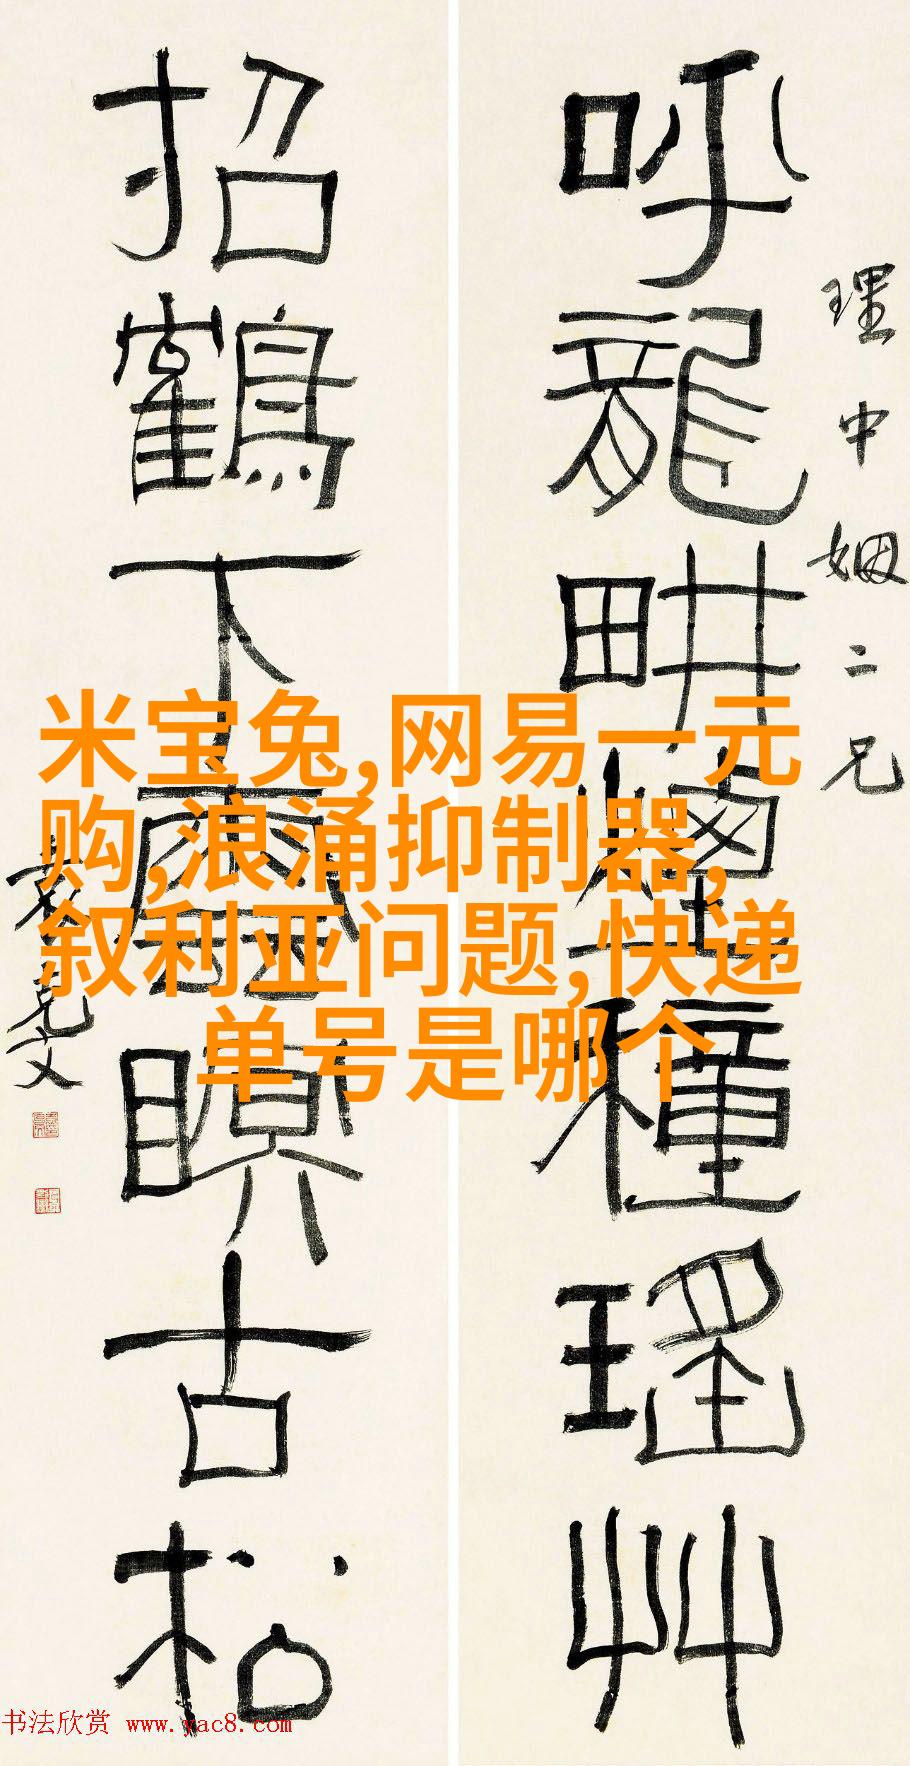 理中姻二兄
呼龍畊煙種瑤艸
招鶴下瞑古松
袁克文
米宝兔,网易一元
购,浪涌抑制器,
叙利亚问题,快递
单号是哪个
书法欣赏 www.yac8.com